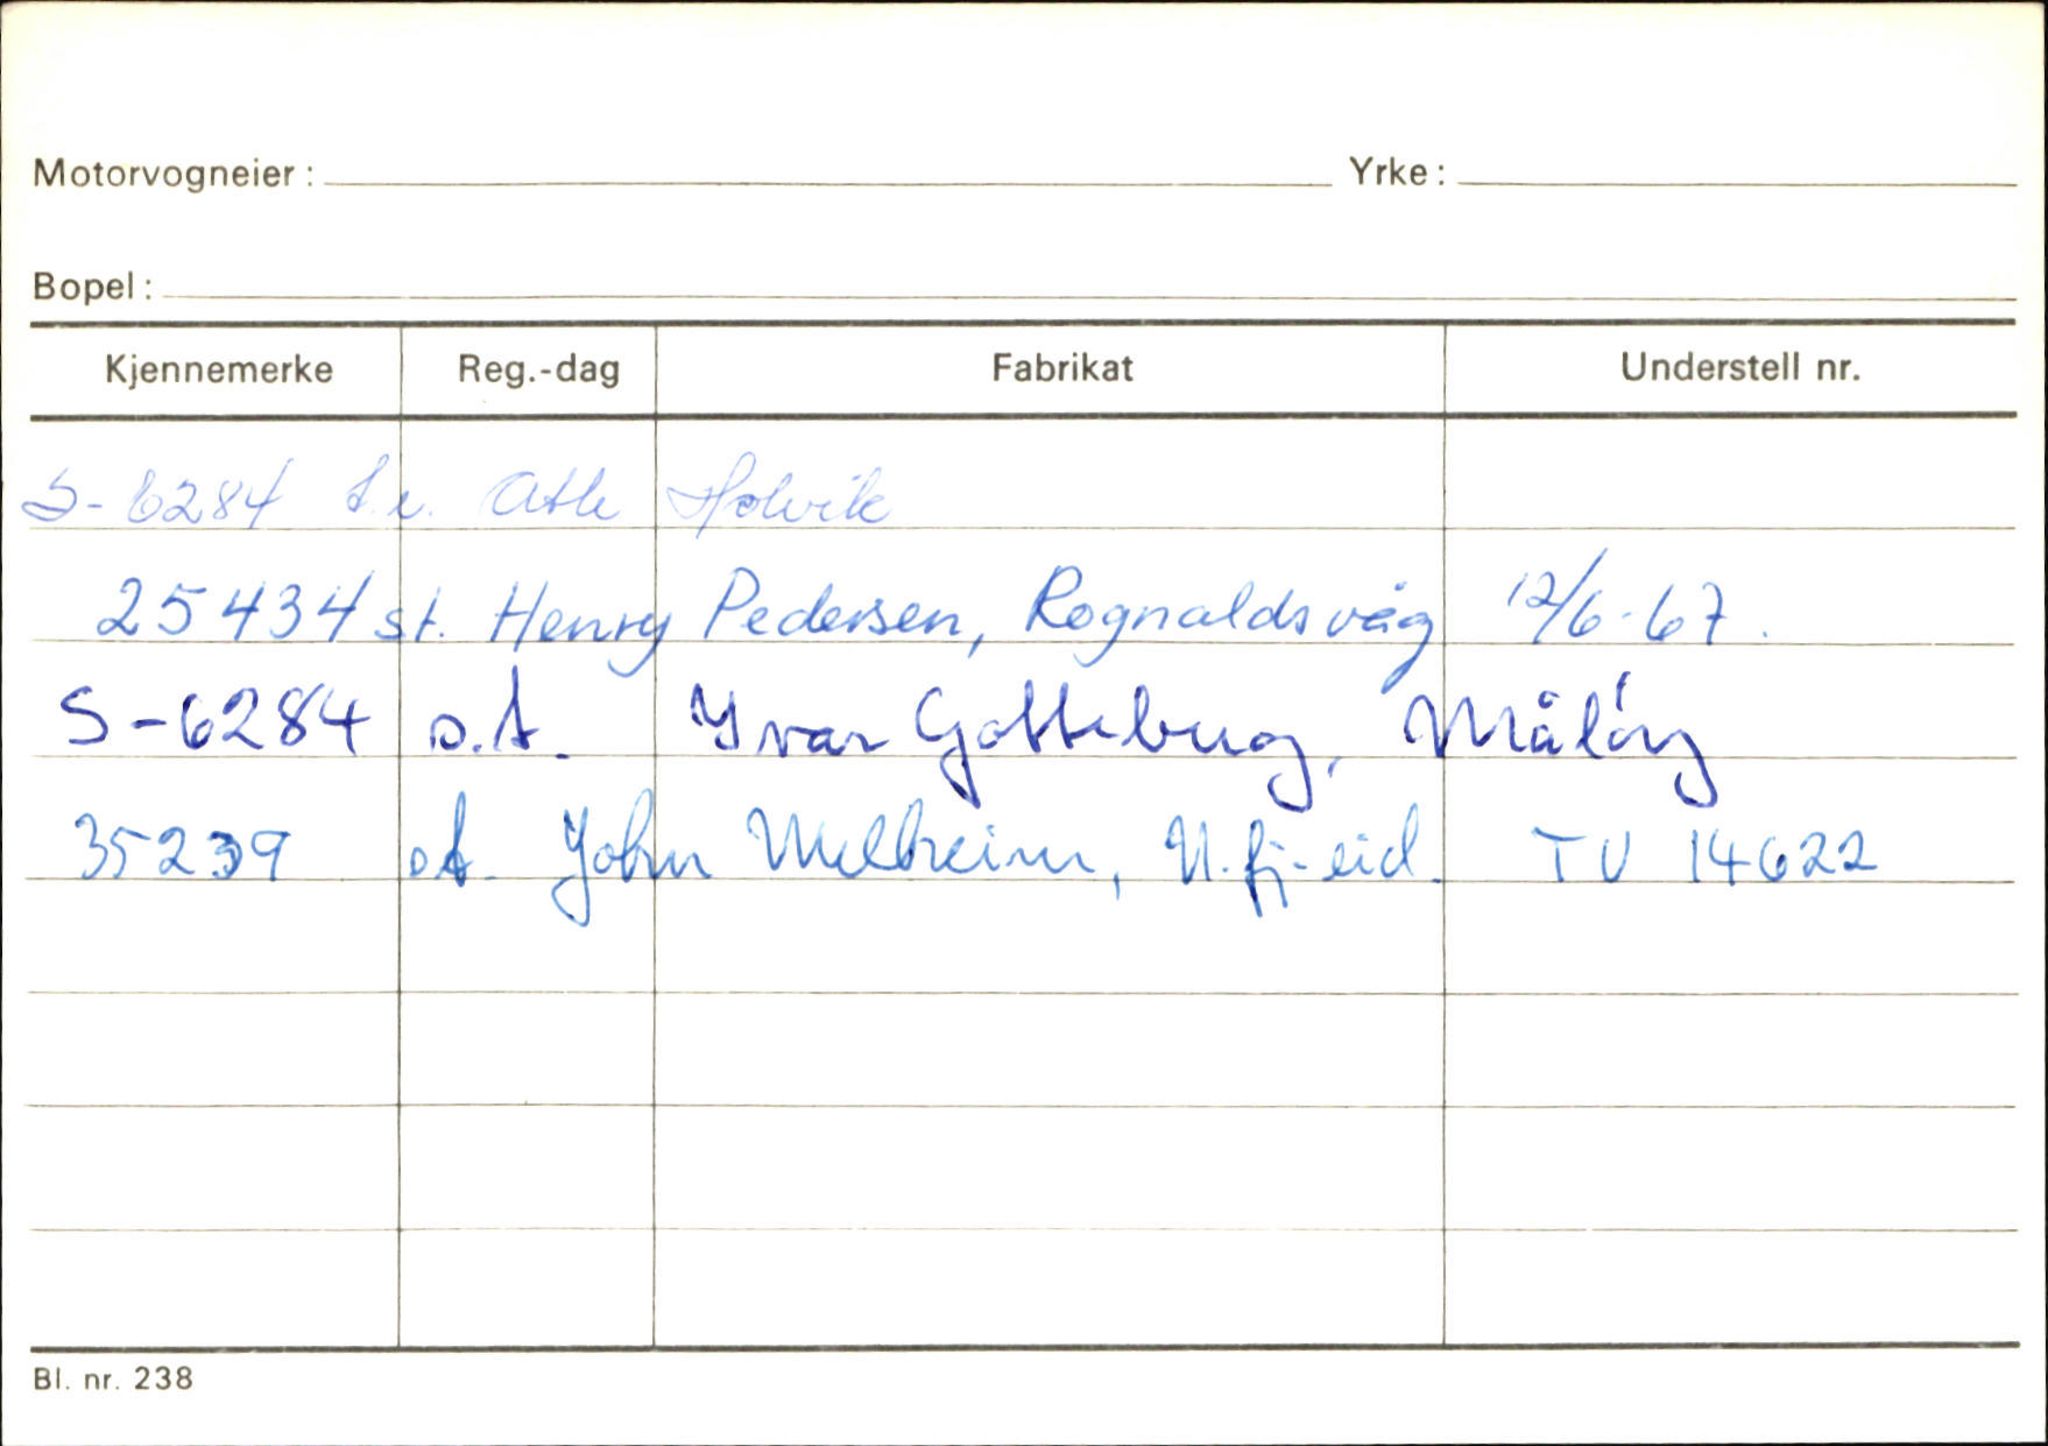 Motorvogneier: Yrke:
Bopel:
Kjennemerke Reg.-dag Fabrikat Understell nr.
S-6284 Atle Holvik
25434 st. Henry Pedersen, Rognaldsvåg 12/6-67.
S-6284 s.t. Yvar Gotteberg, Måløy
35239 st. John Melheim, N.fj-eid. TU 14622
Bl. nr. 238